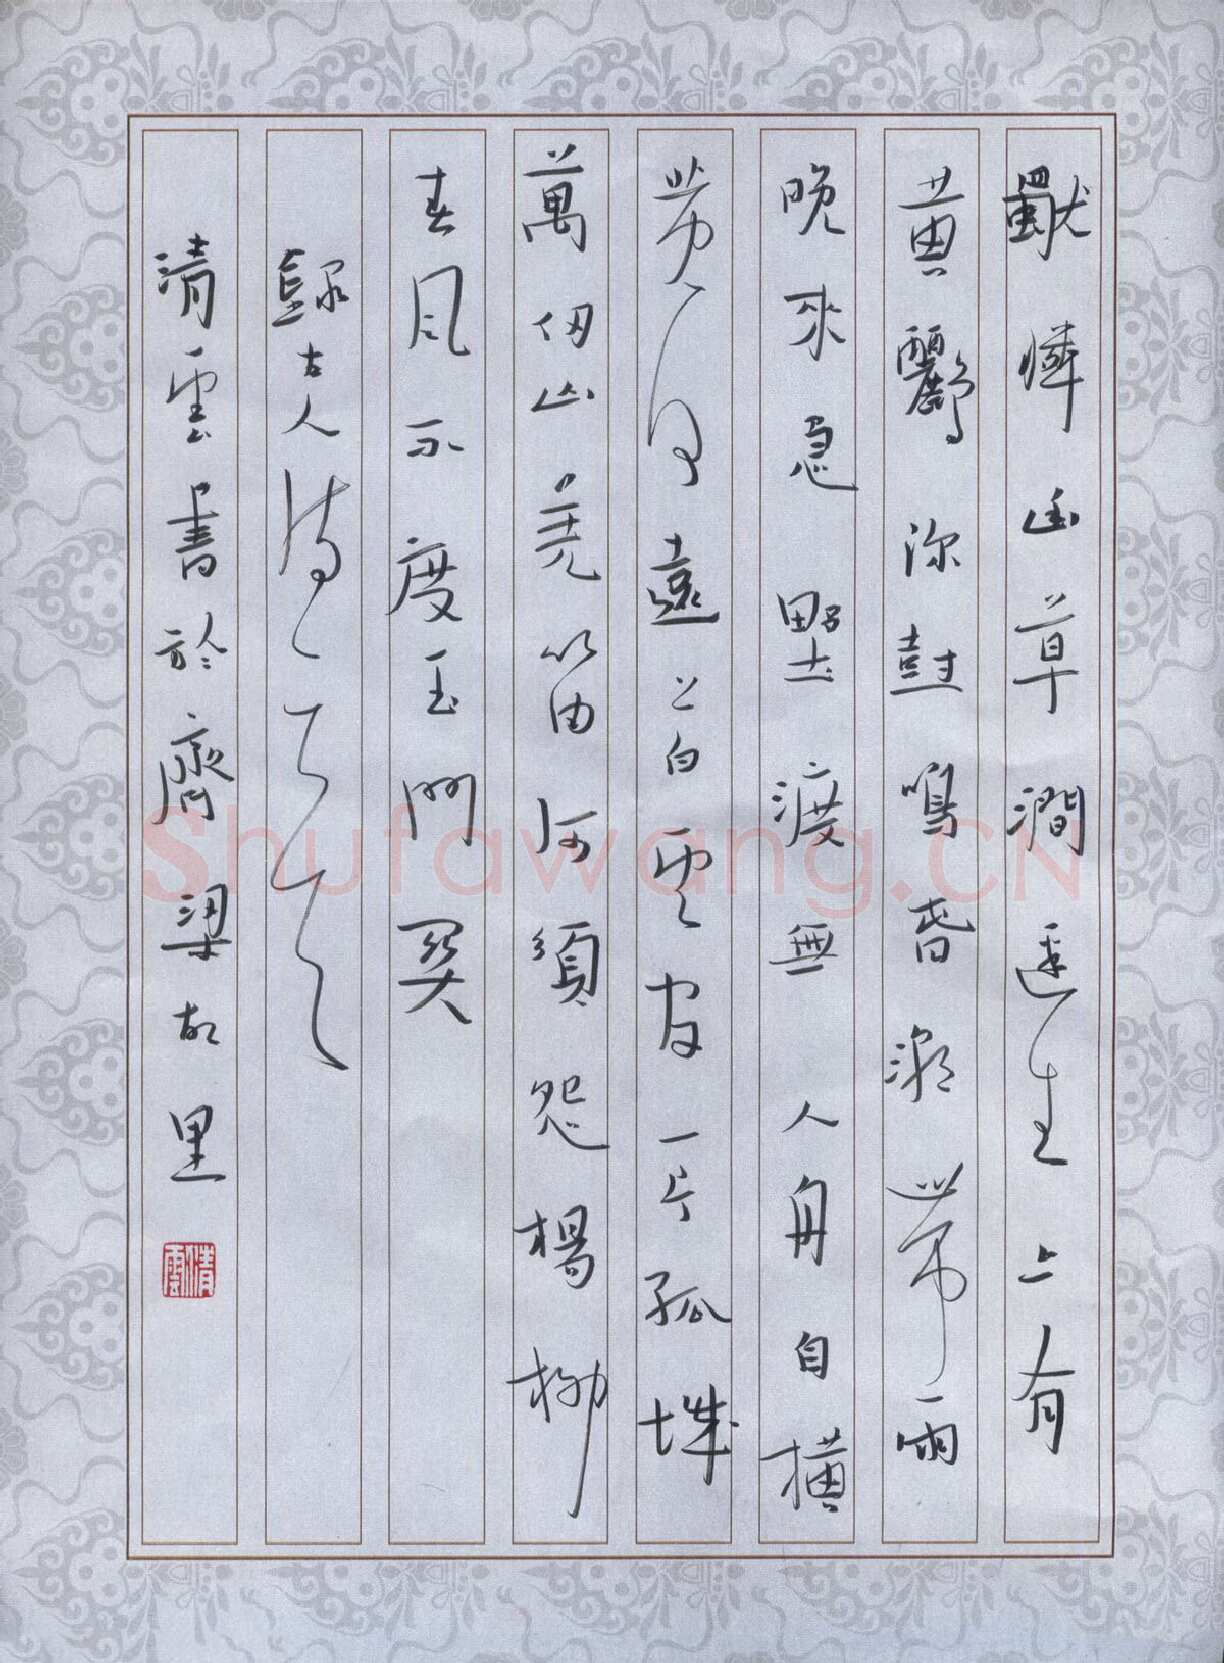 獨憐幽草澗邊生上有
黃鸝深樹鳴春潮帶雨
晚來急野渡無人舟自橫
黃河遠上白雲間一片孤城
萬仞山羌笛何須怨楊柳
春風不度玉門關
錄古人詩
清雲書於齊梁故里
清雲
Shufawang.CN